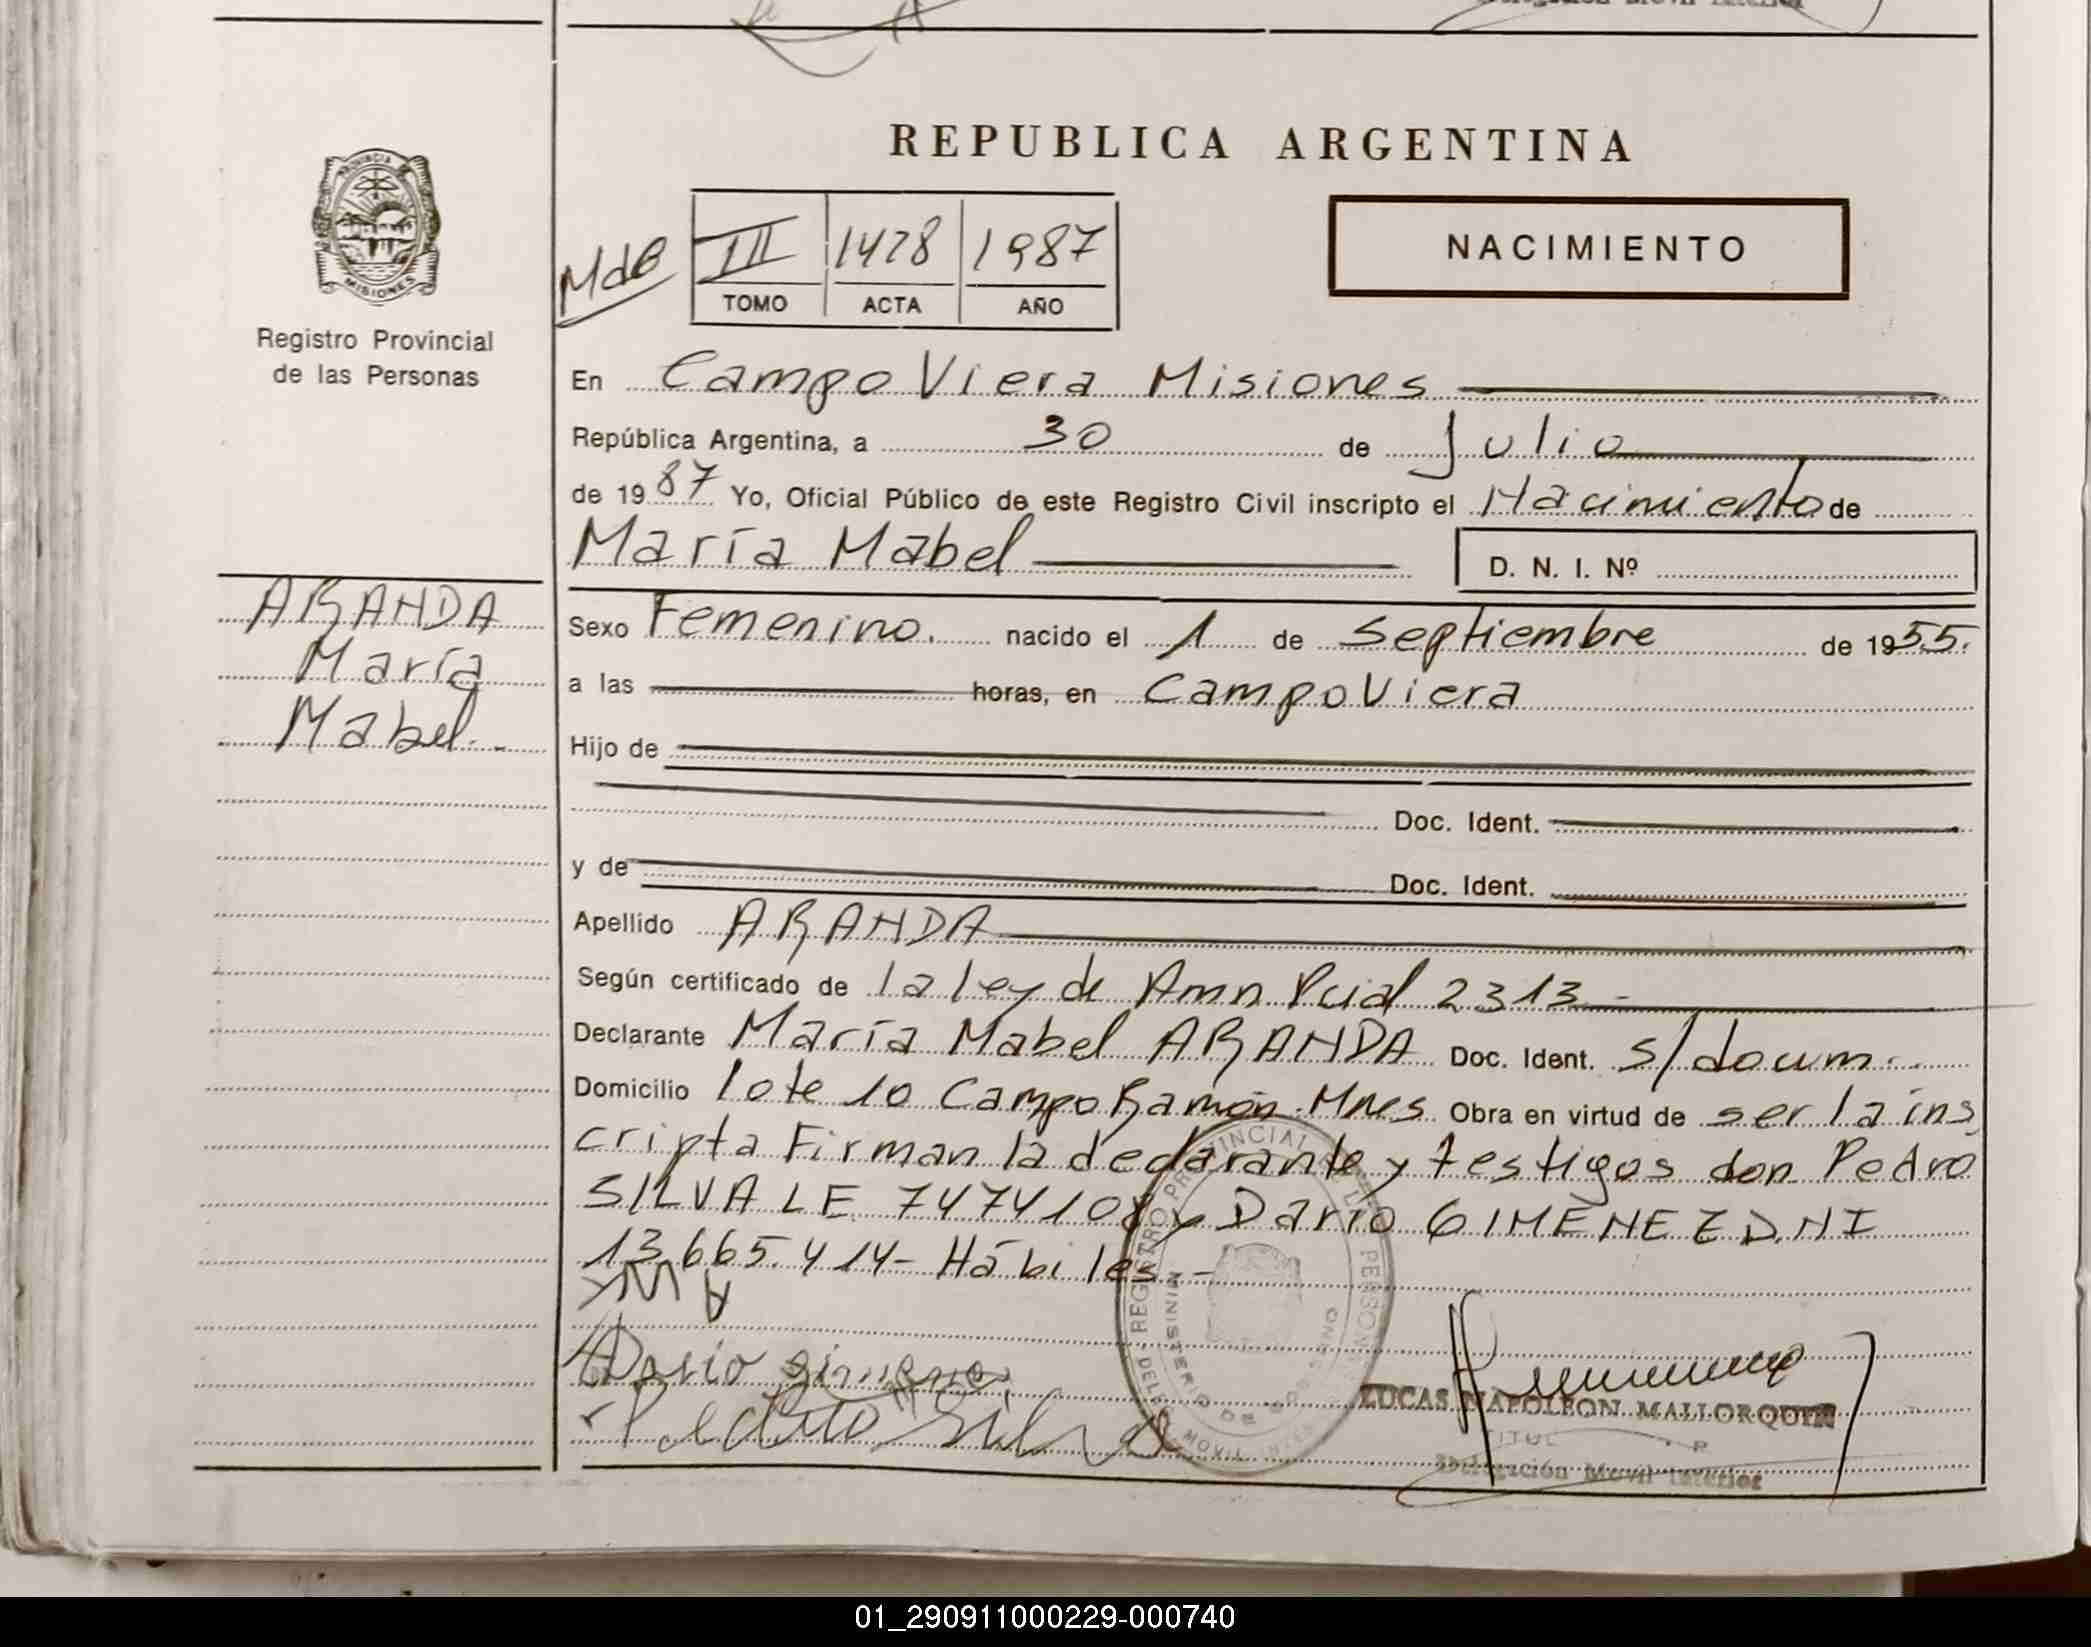 REPUBLICA ARGENTINA
PROVINCIA
MISIONES
Registro Provincial
de las Personas
MdB
III 1428 1987
TOMO ACTA AÑO
NACIMIENTO
En Campo Viera Misiones
República Argentina, a 30 de Julio
de 1987 Yo, Oficial Público de este Registro Civil inscripto el Nacimiento de
María Mabel D. N. I. Nº
ARANDA
María
Mabel
Sexo Femenino. nacido el 1 de Septiembre de 1955.
a las horas, en Campo Viera
Hijo de
Doc. Ident.
y de Doc. Ident.
Apellido ARANDA
Según certificado de la ley de Amn Pcial 2313
Declarante María Mabel ARANDA Doc. Ident. s/docum.
Domicilio lote 10 Campo Ramón Mnes Obra en virtud de ser la ins
cripta Firman la declarante y testigos don Pedro
SILVA LE 7474108 y Darío GIMENEZ D.NI
13.665.414- Hábiles -
Dario
Pedro Silva
LUCAS NAPOLEON MALLORQUIN
Delegación Movil Interior
01_290911000229-000740